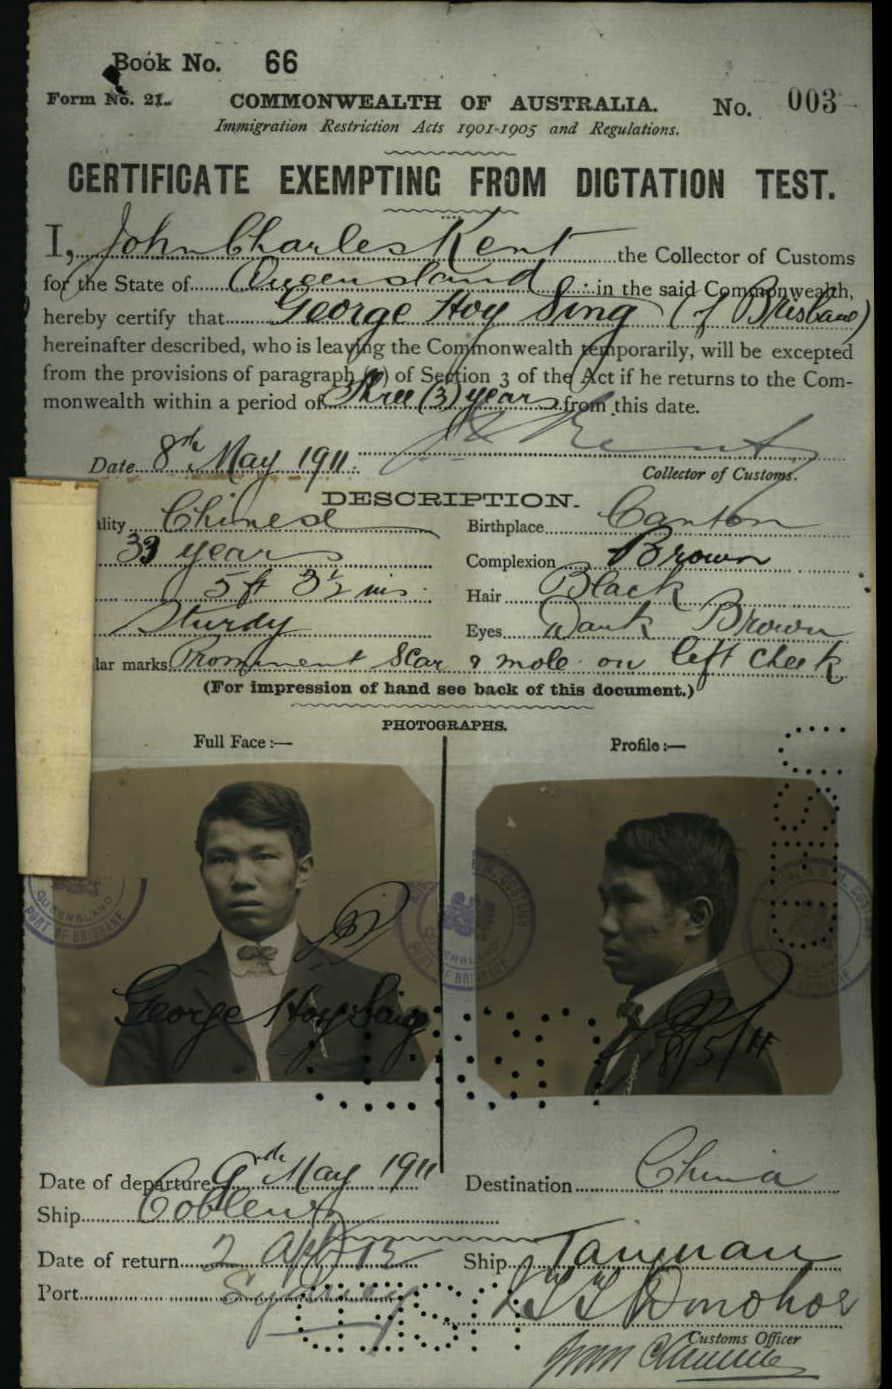 Book No. 66
Form No. 21.
COMMONWEALTH OF AUSTRALIA.
No. 003
Immigration Restriction Acts 1901-1905 and Regulations.
CERTIFICATE EXEMPTING FROM DICTATION TEST.
I, John Charles Kent the Collector of Customs
for the State of Queensland in the said Commonwealth,
hereby certify that George Hoy Sing (of Brisbane)
hereinafter described, who is leaving the Commonwealth temporarily, will be excepted
from the provisions of paragraph (a) of Section 3 of the Act if he returns to the Com-
monwealth within a period of Three (3) years from this date.
Date 8th May 1911. J C Kent
Collector of Customs.
DESCRIPTION.
ality Chinese Birthplace Canton
33 years Complexion Brown
5 ft 3½ ins. Hair Black
Sturdy Eyes Dark Brown
lar marks Prominent scar & mole on left cheek
(For impression of hand see back of this document.)
PHOTOGRAPHS.
Full Face:— Profile:—
QUEENSLAND
PORT OF BRISBANE
George Hoy Sing
8/5/11
Date of departure 9th May 1911 Destination China
Ship Coblenz
Date of return 2 Apl 13 Ship Taiyuan
Port Sydney Donohoe
Customs Officer